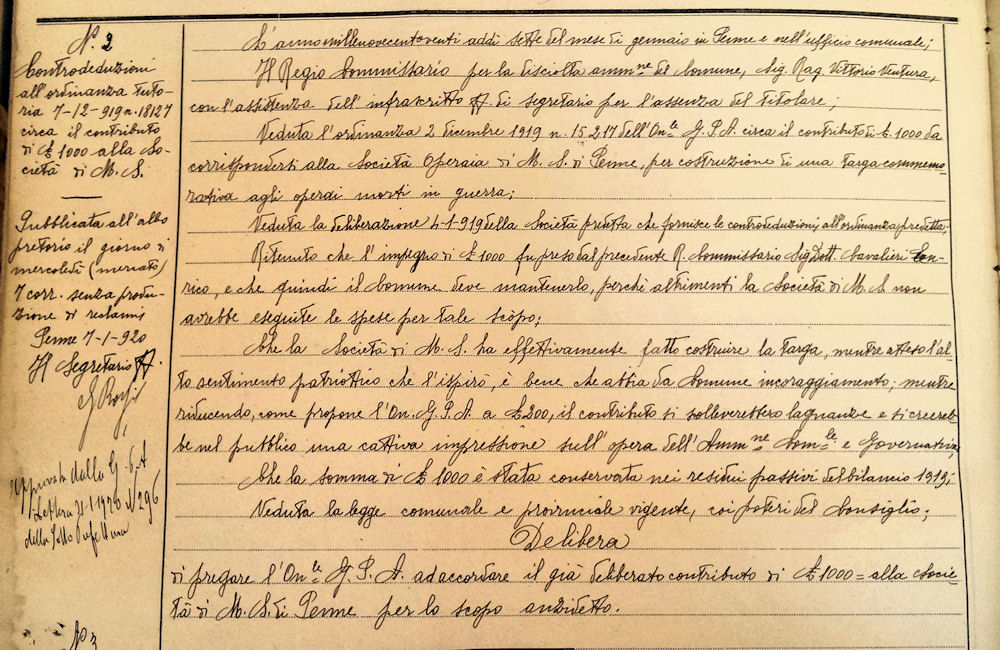 N. 2
Controdeduzioni
all'ordinanza tuto-
ria 7-12-919 n. 18127
circa il contributo
di £ 1000 alla So-
cietà di M. S.
Pubblicata all'albo
pretorio il giorno di
mercoledì (mercato)
7 corr. senza produ-
zione di reclami
Penne 7-1-920
Il Segretario ff.
Approvata dalla G. P. A
Lettera 21-1-1920 N 296
della Sotto Prefettura
N 3
L'anno millenovecentoventi addì sette del mese di gennaio in Penne e nell'ufficio comunale;
Il Regio Commissario per la disciolta amm.ne del Comune, Sig. Rag. Vittorio Ventura,
con l'assistenza dell'infrascritto ff. di segretario per l'assenza del titolare;
Veduta l'ordinanza 2 dicembre 1919 n. 15217 dell'On.le G. P. A. circa il contributo di £ 1000 da
corrispondersi alla Società Operaia di M. S. di Penne, per costruzione di una targa commemo-
rativa agli operai morti in guerra;
Veduta la deliberazione 4-1-919 della Società predetta che fornisce le controdeduzioni all'ordinanza predetta;
Ritenuto che l'impegno di £ 1000 fu preso dal precedente R. Commissario Sig. Dott. Cavalieri En-
rico, e che quindi il Comune deve mantenerlo, perchè altrimenti la Società di M. S. non
avrebbe eseguite le spese per tale scopo;
Che la Società di M. S. ha effettivamente fatto costruire la targa, mentre atteso l'al-
to sentimento patriottico che l'ispirò, è bene che abbia da Comune incoraggiamento; mentre
riducendo, come propone l'On. G. P. A. a £ 200, il contributo si solleverebbero lagnanze e si creereb-
be nel pubblico una cattiva impressione sull'opera dell'Amm.ne Com.le e Governativa;
Che la somma di £ 1000 è stata conservata nei residui passivi del bilancio 1919;
Veduta la legge comunale e provinciale vigente, coi poteri del Consiglio;
Delibera
di pregare l'On.le G. P. A. ad accordare il già deliberato contributo di £ 1000 = alla Socie-
tà di M. S. di Penne per lo scopo anzidetto.